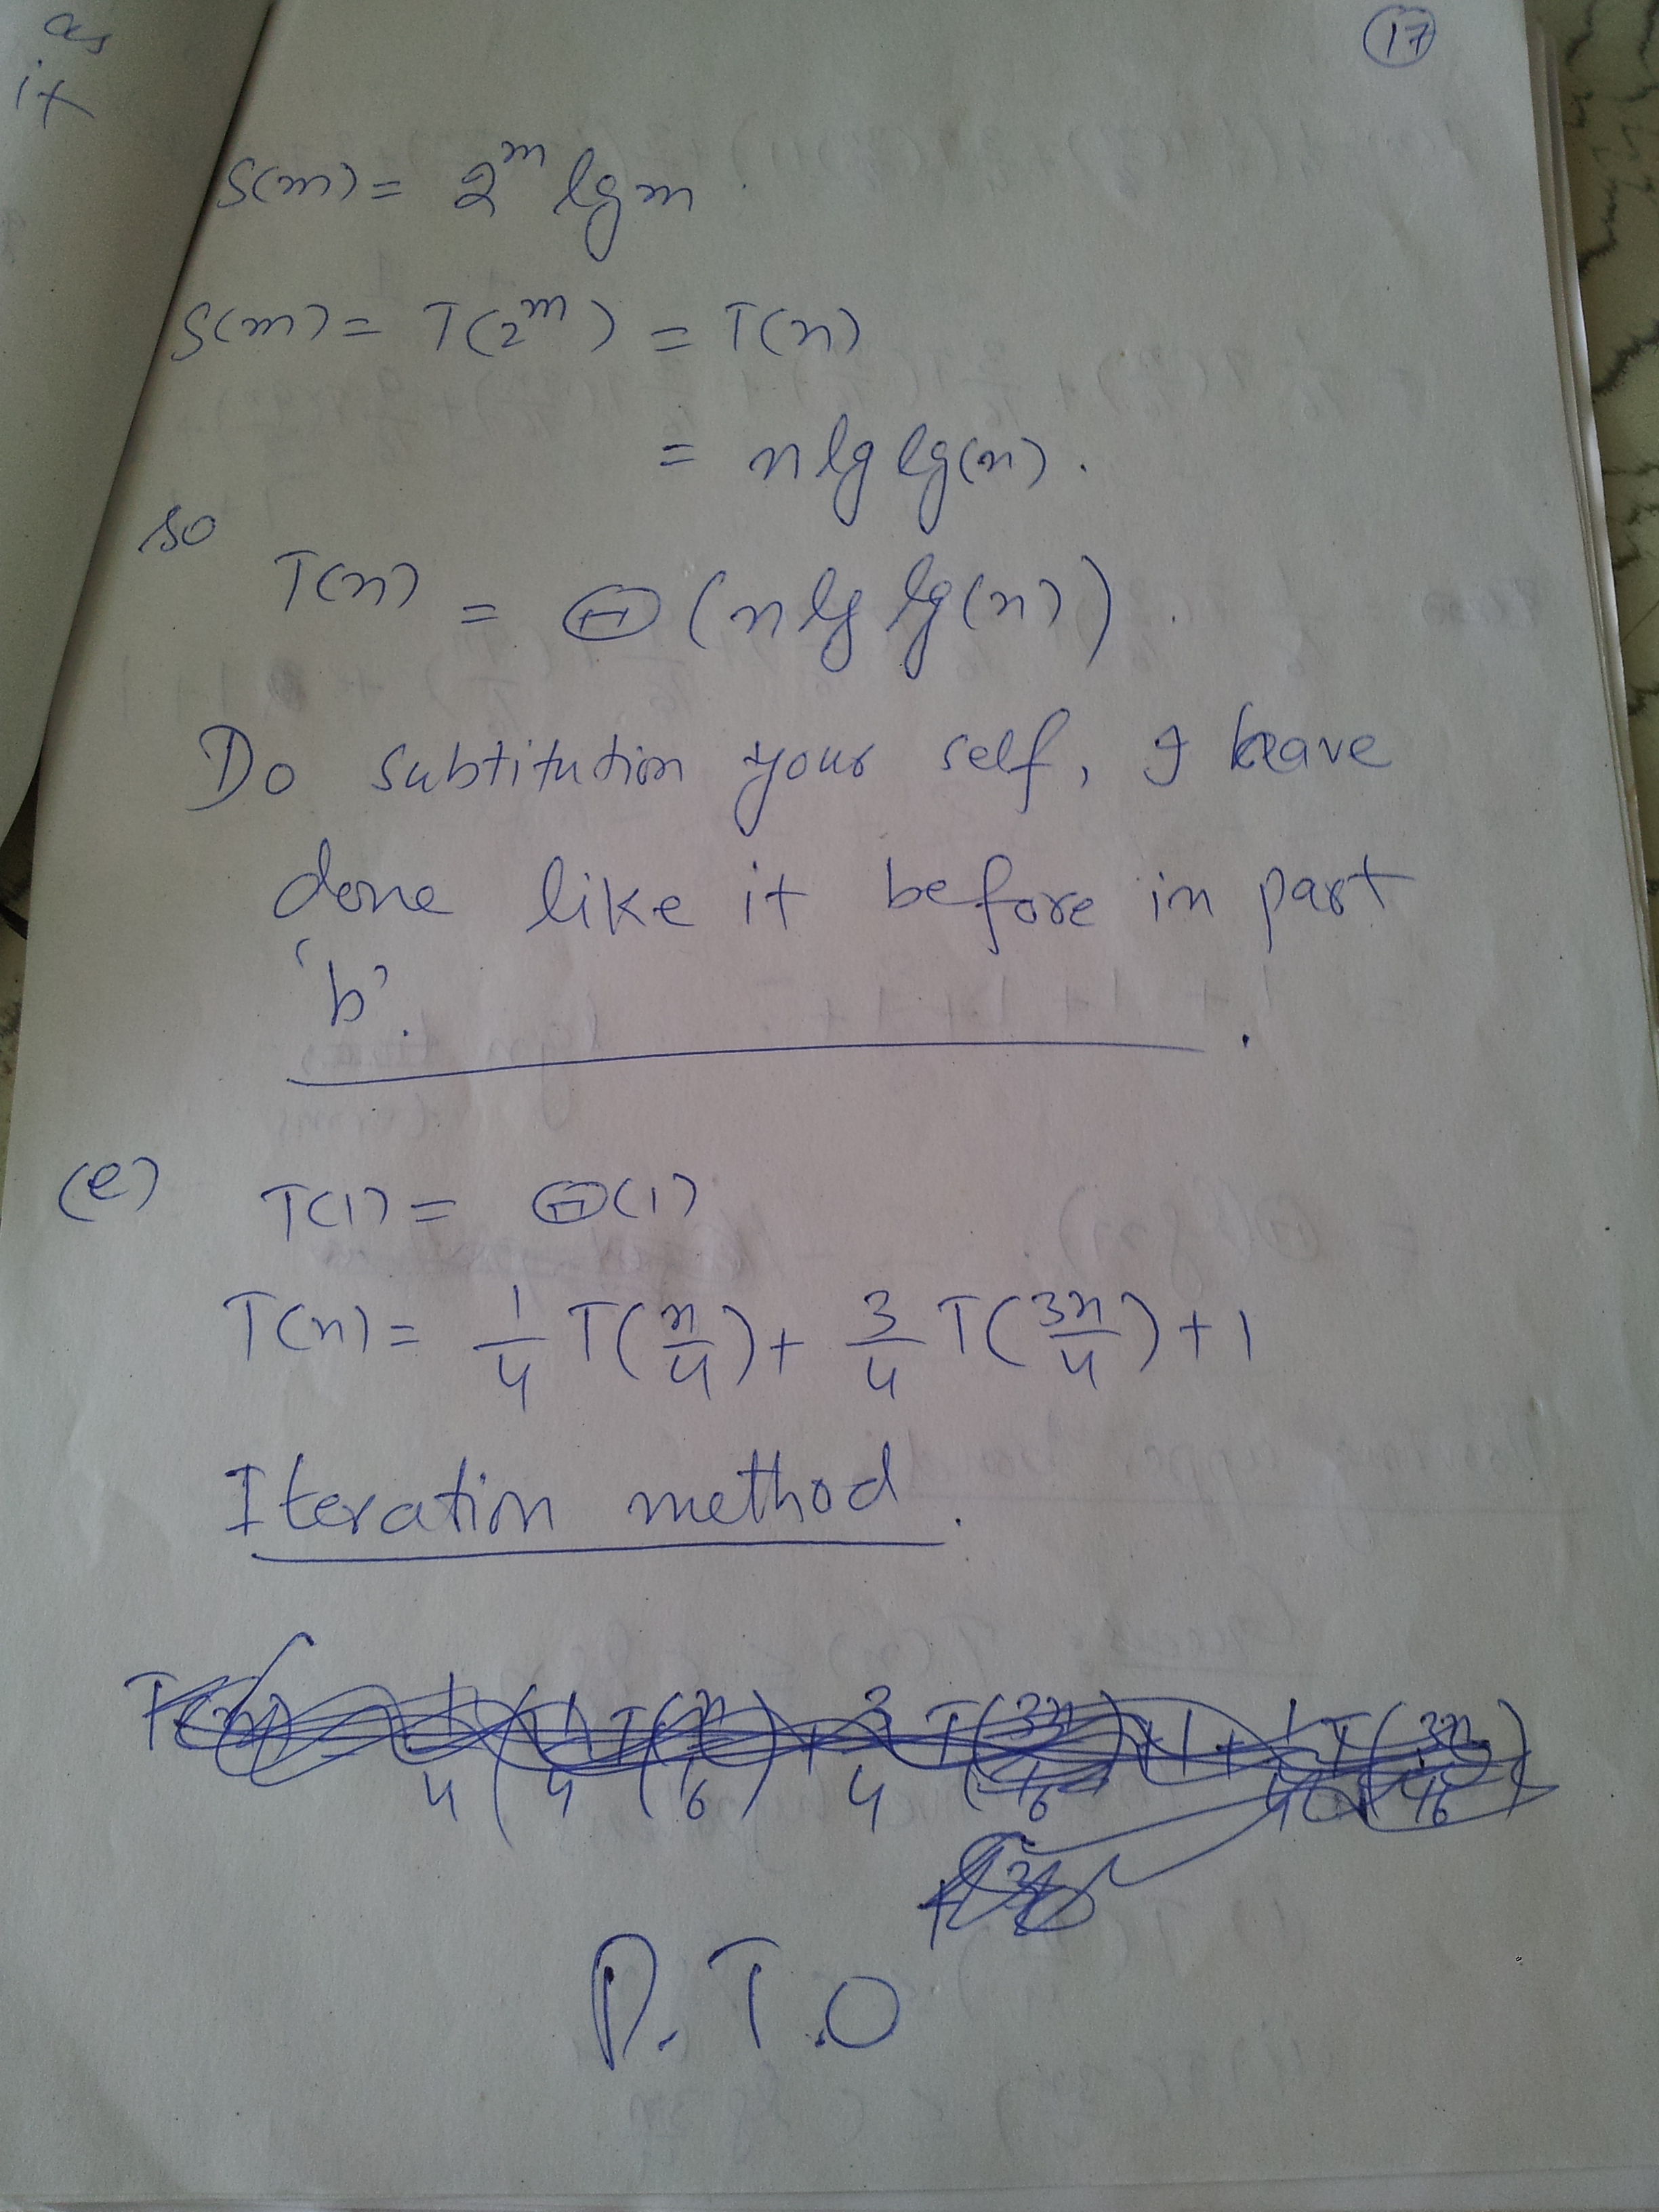 as
it
(17)
S(m) = 2^m lg m.
S(m) = T(2^m) = T(n)
= n lg lg(n).
so
T(n) = Θ(n lg lg(n)).
Do subtitution your self, I have
done like it before in part
'b'.
(e) T(1) = Θ(1)
T(n) = 1/4 T(n/4) + 3/4 T(3n/4) + 1
Iteration method.
P.T.O